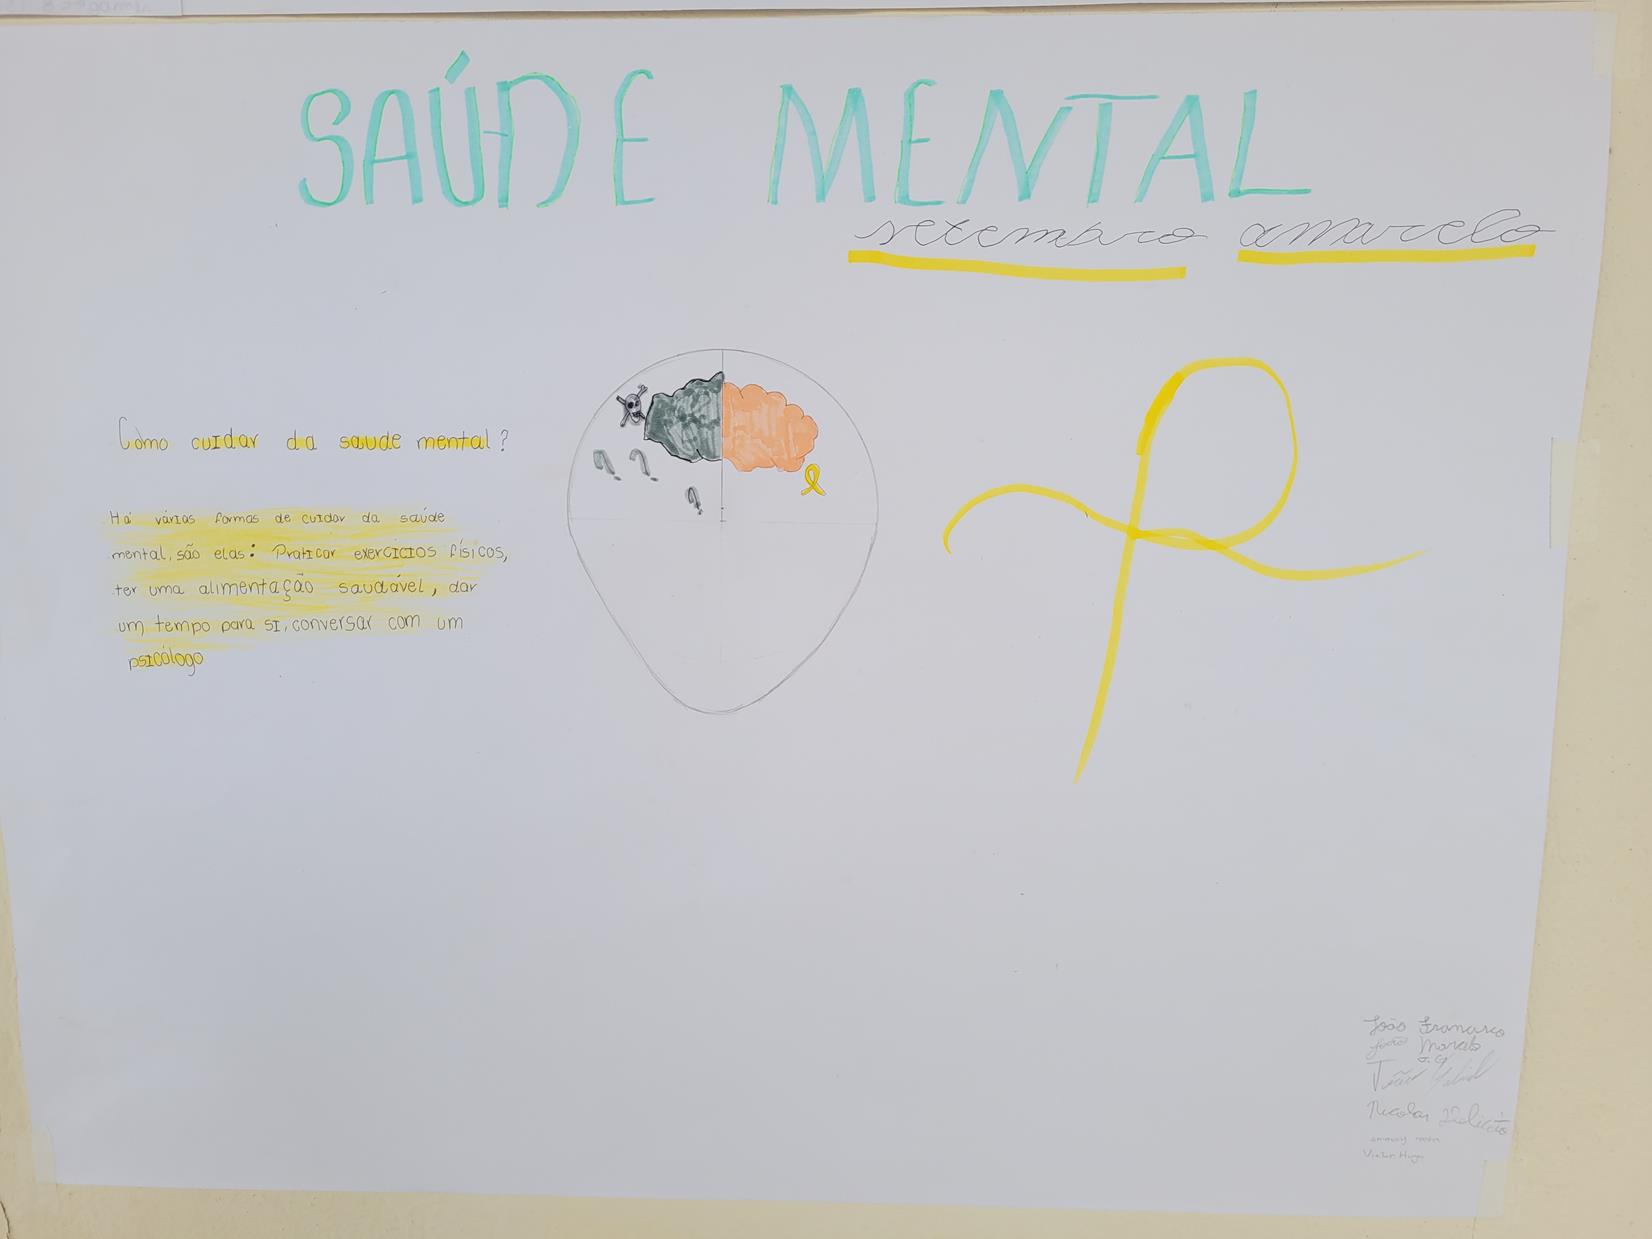 SAÚDE MENTAL
setembro amarelo
Como cuidar da saude mental?
Há várias formas de cuidar da saúde
mental, são elas: Praticar exercícios físicos,
ter uma alimentação saudável, dar
um tempo para si, conversar com um
psicólogo
? ?
?
João Francisco
João
Nicolas
Victor Hugo